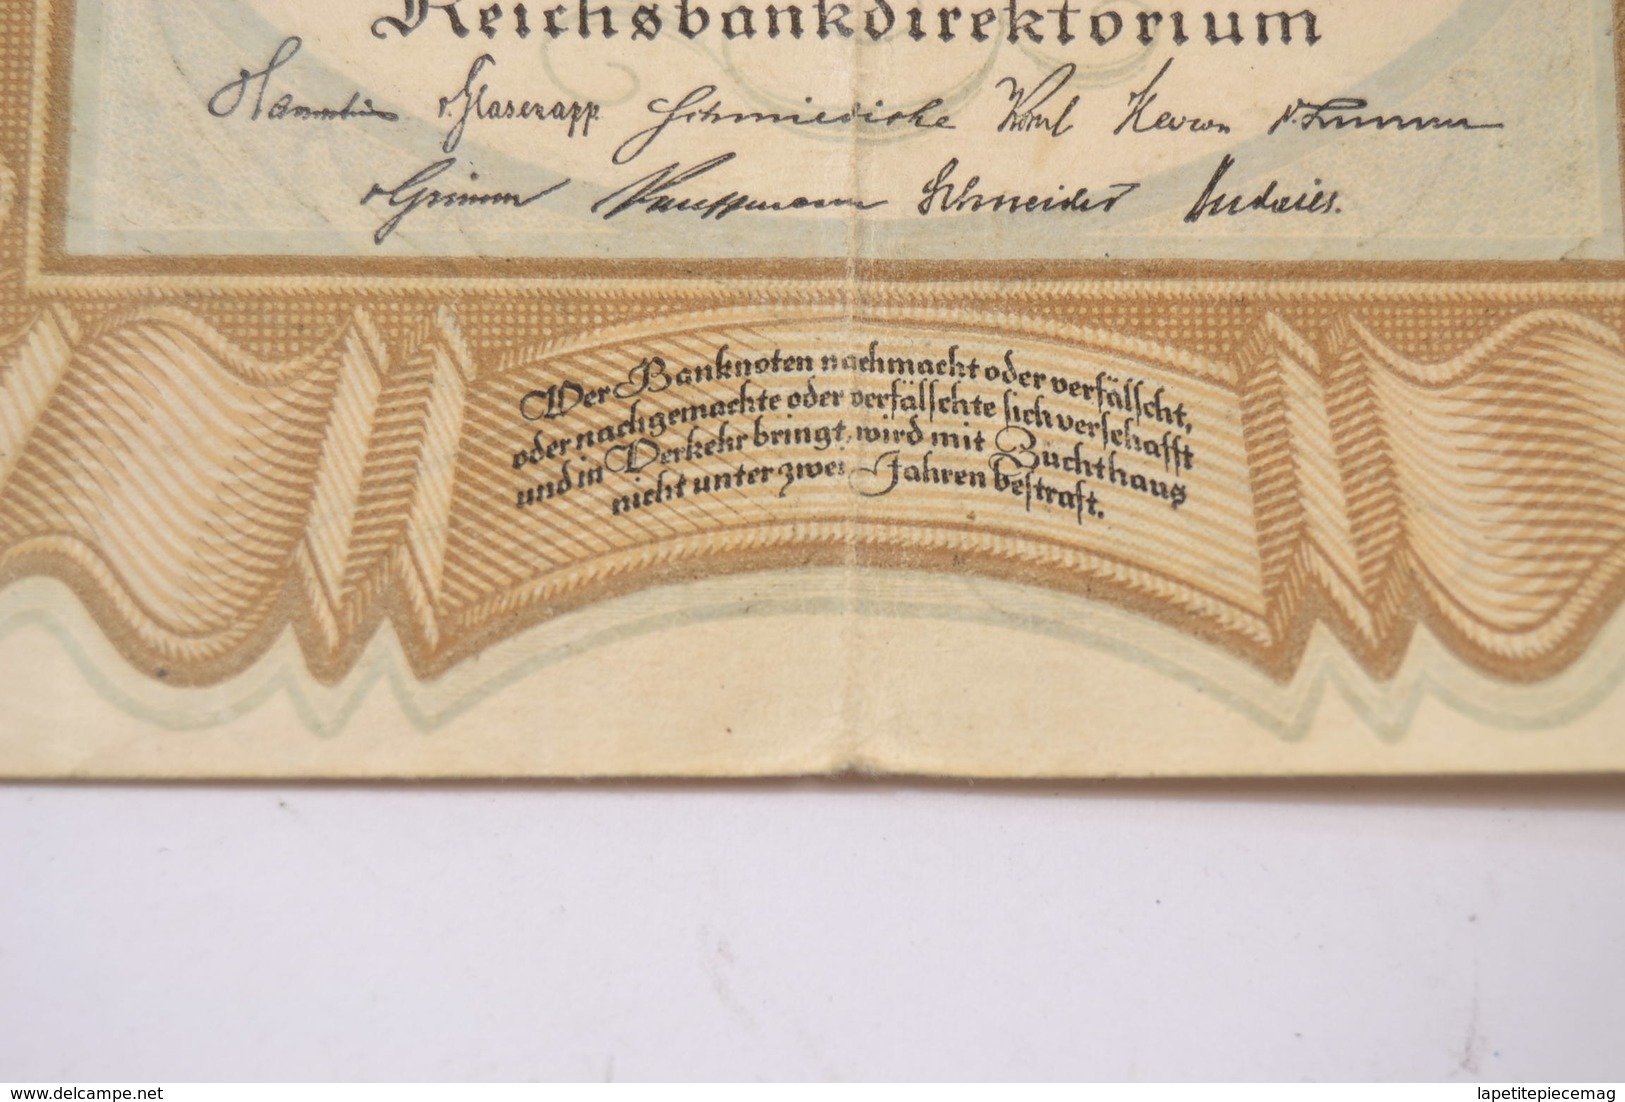 Reichsbankdirektorium
v. Glasenapp Schmiedicke Korn
v Grimm Kauffmann Schneider Budczies.
Wer Banknoten nachmacht oder verfälscht,
oder nachgemachte oder verfälschte sich verschafft
und in Verkehr bringt, wird mit Zuchthaus
nicht unter zwei Jahren bestraft.
www.delcampe.net
lapetitepiecemag